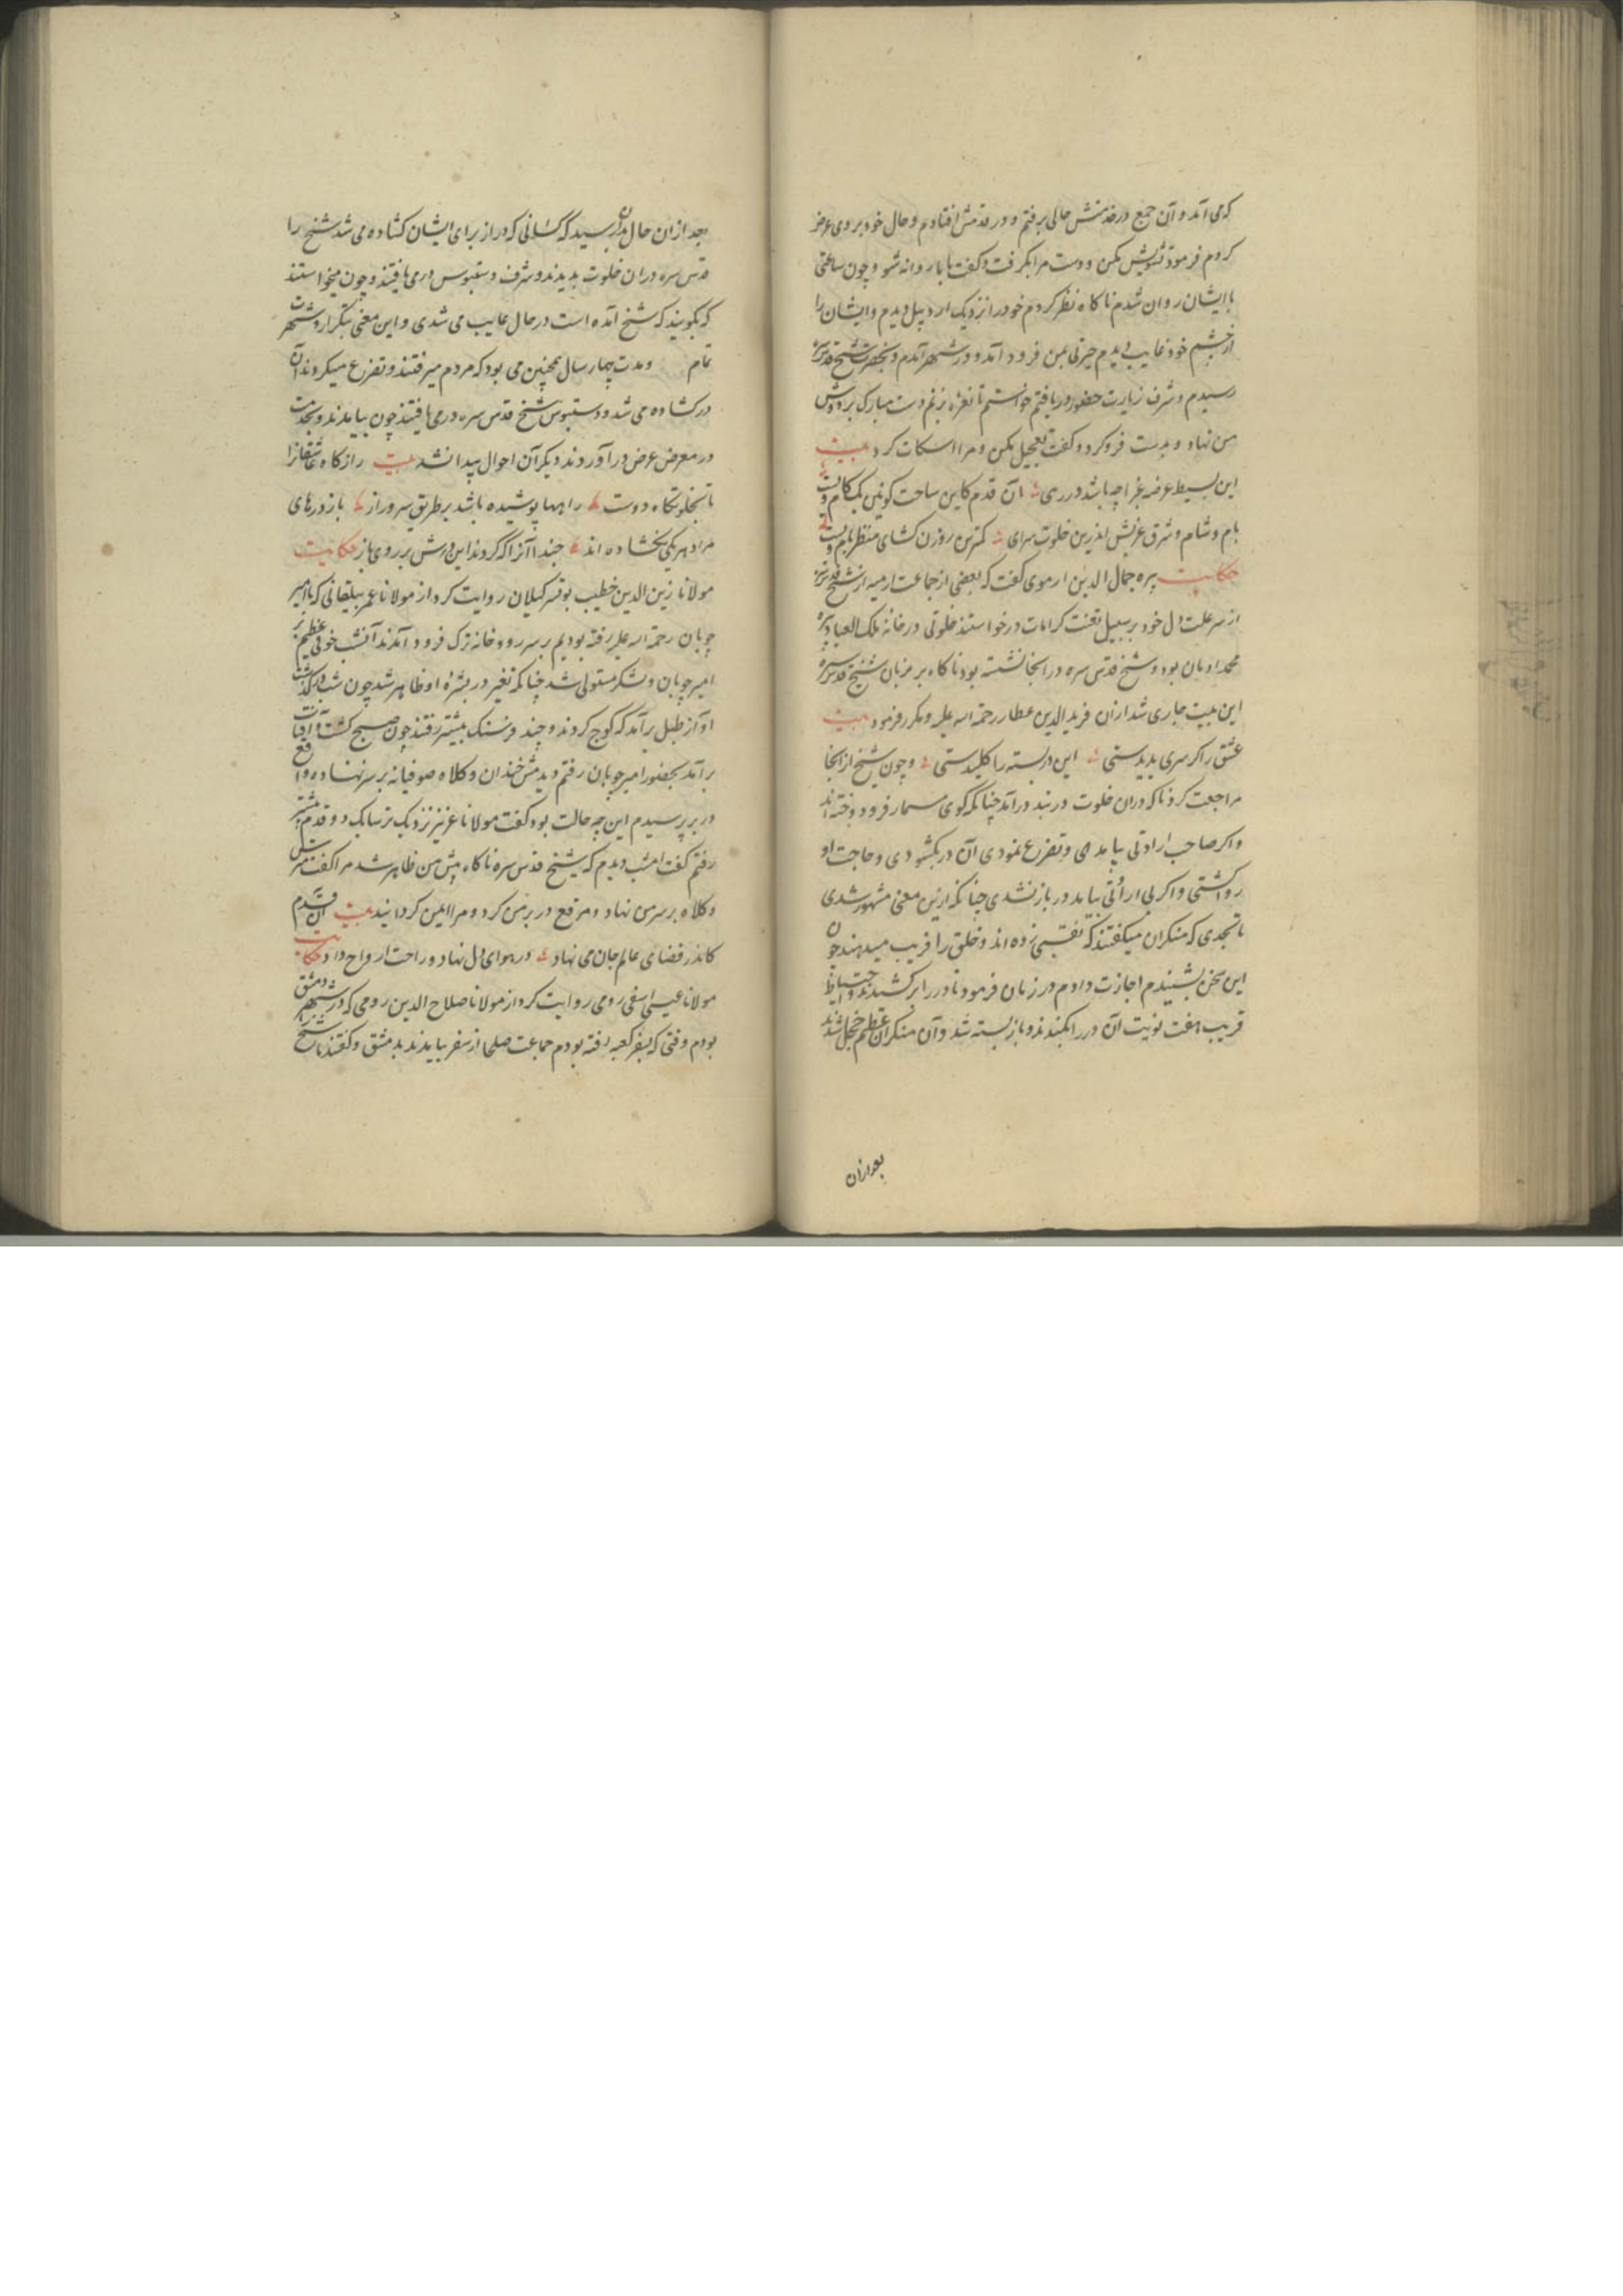 که می آمد و آن جمع در خدمتش حالی برفتم و در قدمش افتادم و حال خود بروی عرض
کردم فرمود تشویش مکن و دست مرا بگرفت و گفت با ما روانه شو و چون ساعتی
با ایشان روان شدم ناکاه نظر کردم خود را نزدیک اردبیل دیدم و ایشان را
از چشم خود غایب دیدم حیرتی بمن فرود آمد و در شهر آمدم و بحضرت شیخ قدس سره
رسیدم و شرف زیارت حضور دریافتم خواستم تا نعره بزنم دست مبارک بر دوش
من نهاد و بدست فرو کرد و گفت تعجیل مکن و مرا اسکات کرد بیت
این بسیط عرضه غبرا چه باشد در رهی آن قدم کاین ساحت کونین یک کام ویست
بام و شام و شرق و غربش اندرین خلوت سرای کمترین روزن کشای منظر بام ویست
حکایت پیره جمال الدین ارموی گفت که بعضی از جماعت ارمیه از شیخ قدس سره
از سر علت دل خود بر سبیل تعنت کرامات درخواستند خلوتی در خانه ملک العباد پیره
محمد اومان بود و شیخ قدس سره در انجا نشسته بود ناکاه بر زبان شیخ قدس سره
این بیت جاری شد ازان فرید الدین عطار رحمة الله علیه و مکرر فرمود بیت
عشق را کر سری پدیدستی این در بسته را کلیدستی و چون شیخ از انجا
مراجعت کرد ناکه در آن خلوت در بند در آمد چنانکه گوی مسمار فرو دوخته اند
و اکر صاحب ارادتی بیامدی و تضرع نمودی آن در بکشودی و حاجت او
روا کشتی و اکر بی ارادتی بیامد در باز نشدی چنانکه ازین معنی مشهور شدی
تا بحدی که منکران میکفتند که نقبی زده اند و خلق را فریب میدهند چون
این سخن بشنیدم اجازت دادم در زمان فرمود تا در را بر کشیدند و احتیاط
قریب هفت نوبت آن در را بکندند و باز بسته شد و آن منکران عظیم خجل شدند
بعد ازان
بعد ازان حال بدان رسید که کسانی که در از برای ایشان کشاده می شد شیخ را
قدس سره در ان خلوت بدیدند و شرف دستبوس در می یافتند و چون میخواستند
که بکویند که شیخ آمده است در حال غایب می شدی و این معنی بتکرار و شهرت
تمام و مدت چهار سال همچنین می بود که مردم میرفتند و تضرع میکردند آن
در کشاده می شد و دستبوس شیخ قدس سره در می یافتند چون بیامدند و بخدمت
در معرض عرض در آوردند دیکر آن احوال پیدا نشد بیت راز کاه عاشقانرا
تا بخلوتکاه دوست راهها پوشیده باشد بر طریق سر و راز باز درهای
مراد هر یکی بکشاده اند حبذا آنرا که کردند این درش بر روی باز حکایت
مولانا زین الدین خطیب بوتسر کیلان روایت کرد از مولانا عمر بیلقانی که با امیر
چوبان رحمة الله علیه رفته بودیم بر سر رود خانه ترک فرود آمدند آنشب خوفی عظیم بر
امیر چوبان و لشکر مستولی شد چنانکه تغیر در بشره او ظاهر شد چون شب در کذشت
آواز طبل برآمد که کوچ کردند و چند فرسنک پیشتر رفتند چون صبح کشت و آفتاب
برآمد بحضور امیر چوبان رفتم دیدمش خندان و کلاه صوفیانه بر سر نهاده و مرقع
در بر پرسیدم این چه حالت بود گفت مولانا عزیز نزدیک تر بیا یک دو قدم پیشتر
رفتم گفت امشب دیدم که شیخ قدس سره ناکاه پیش من ظاهر شد مرا گفت مترس
و کلاه بر سر من نهاد و مرقع در بر من کرد و مرا ایمن کردانید بیت آن قدم
کاندر فضای عالم جان می نهاد در هوای دل نهاد و راحت ارواح داد حکایت
مولانا عیسی اسفی رومی روایت کرد از مولانا صلاح الدین رومی که در شهر دمشق
بودم وقتی که بسفر کعبه رفته بودم جماعت صلحا از سفر بیامدند بدمشق و گفتند با شیخ